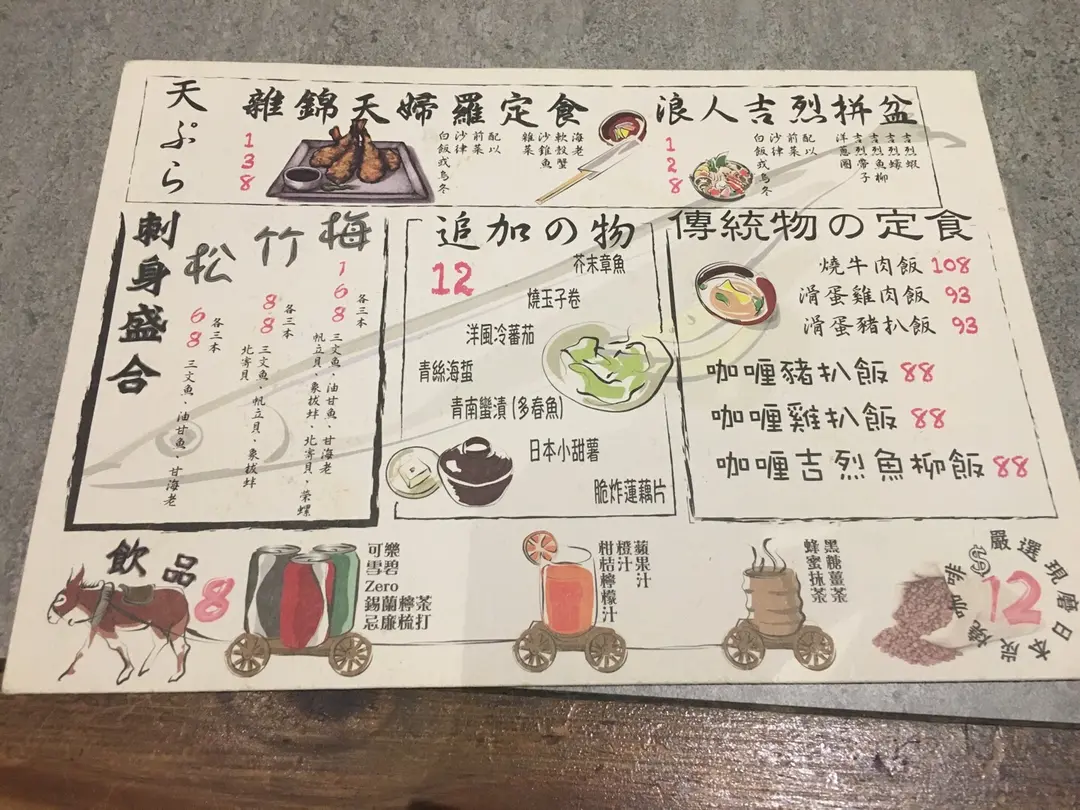 天ぷら
雜錦天婦羅定食
138
海老
軟殼蟹
沙錐魚
雜菜
配以
前菜
沙律
白飯或烏冬
浪人吉烈拼盆
128
吉烈蝦
吉烈蠔
吉烈魚柳
吉烈帶子
洋蔥圈
配以
前菜
沙律
白飯或烏冬
刺身盛合
梅
168
各三本
三文魚、油甘魚、甘海老
帆立貝、象拔蚌、北寄貝、榮螺
竹
88
各三本
三文魚、帆立貝、象拔蚌
北寄貝
松
68
各三本
三文魚、油甘魚、甘海老
追加の物
12
芥末章魚
燒玉子卷
洋風冷蕃茄
青絲海蜇
青南蠻漬(多春魚)
日本小甜薯
脆炸蓮藕片
傳統物の定食
燒牛肉飯 108
滑蛋雞肉飯 93
滑蛋豬扒飯 93
咖喱豬扒飯 88
咖喱雞扒飯 88
咖喱吉烈魚柳飯 88
飲品
8
可樂
雪碧
Zero
錫蘭檸茶
忌廉梳打
蘋果汁
橙汁
柑桔檸檬汁
黑糖薑茶
蜂蜜抹茶
嚴選現磨日本炭燒咖啡
12